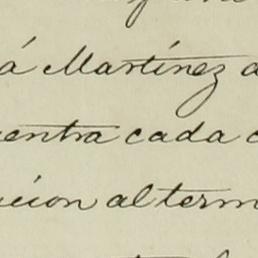 á Martínez d
entra cada c
icion al term